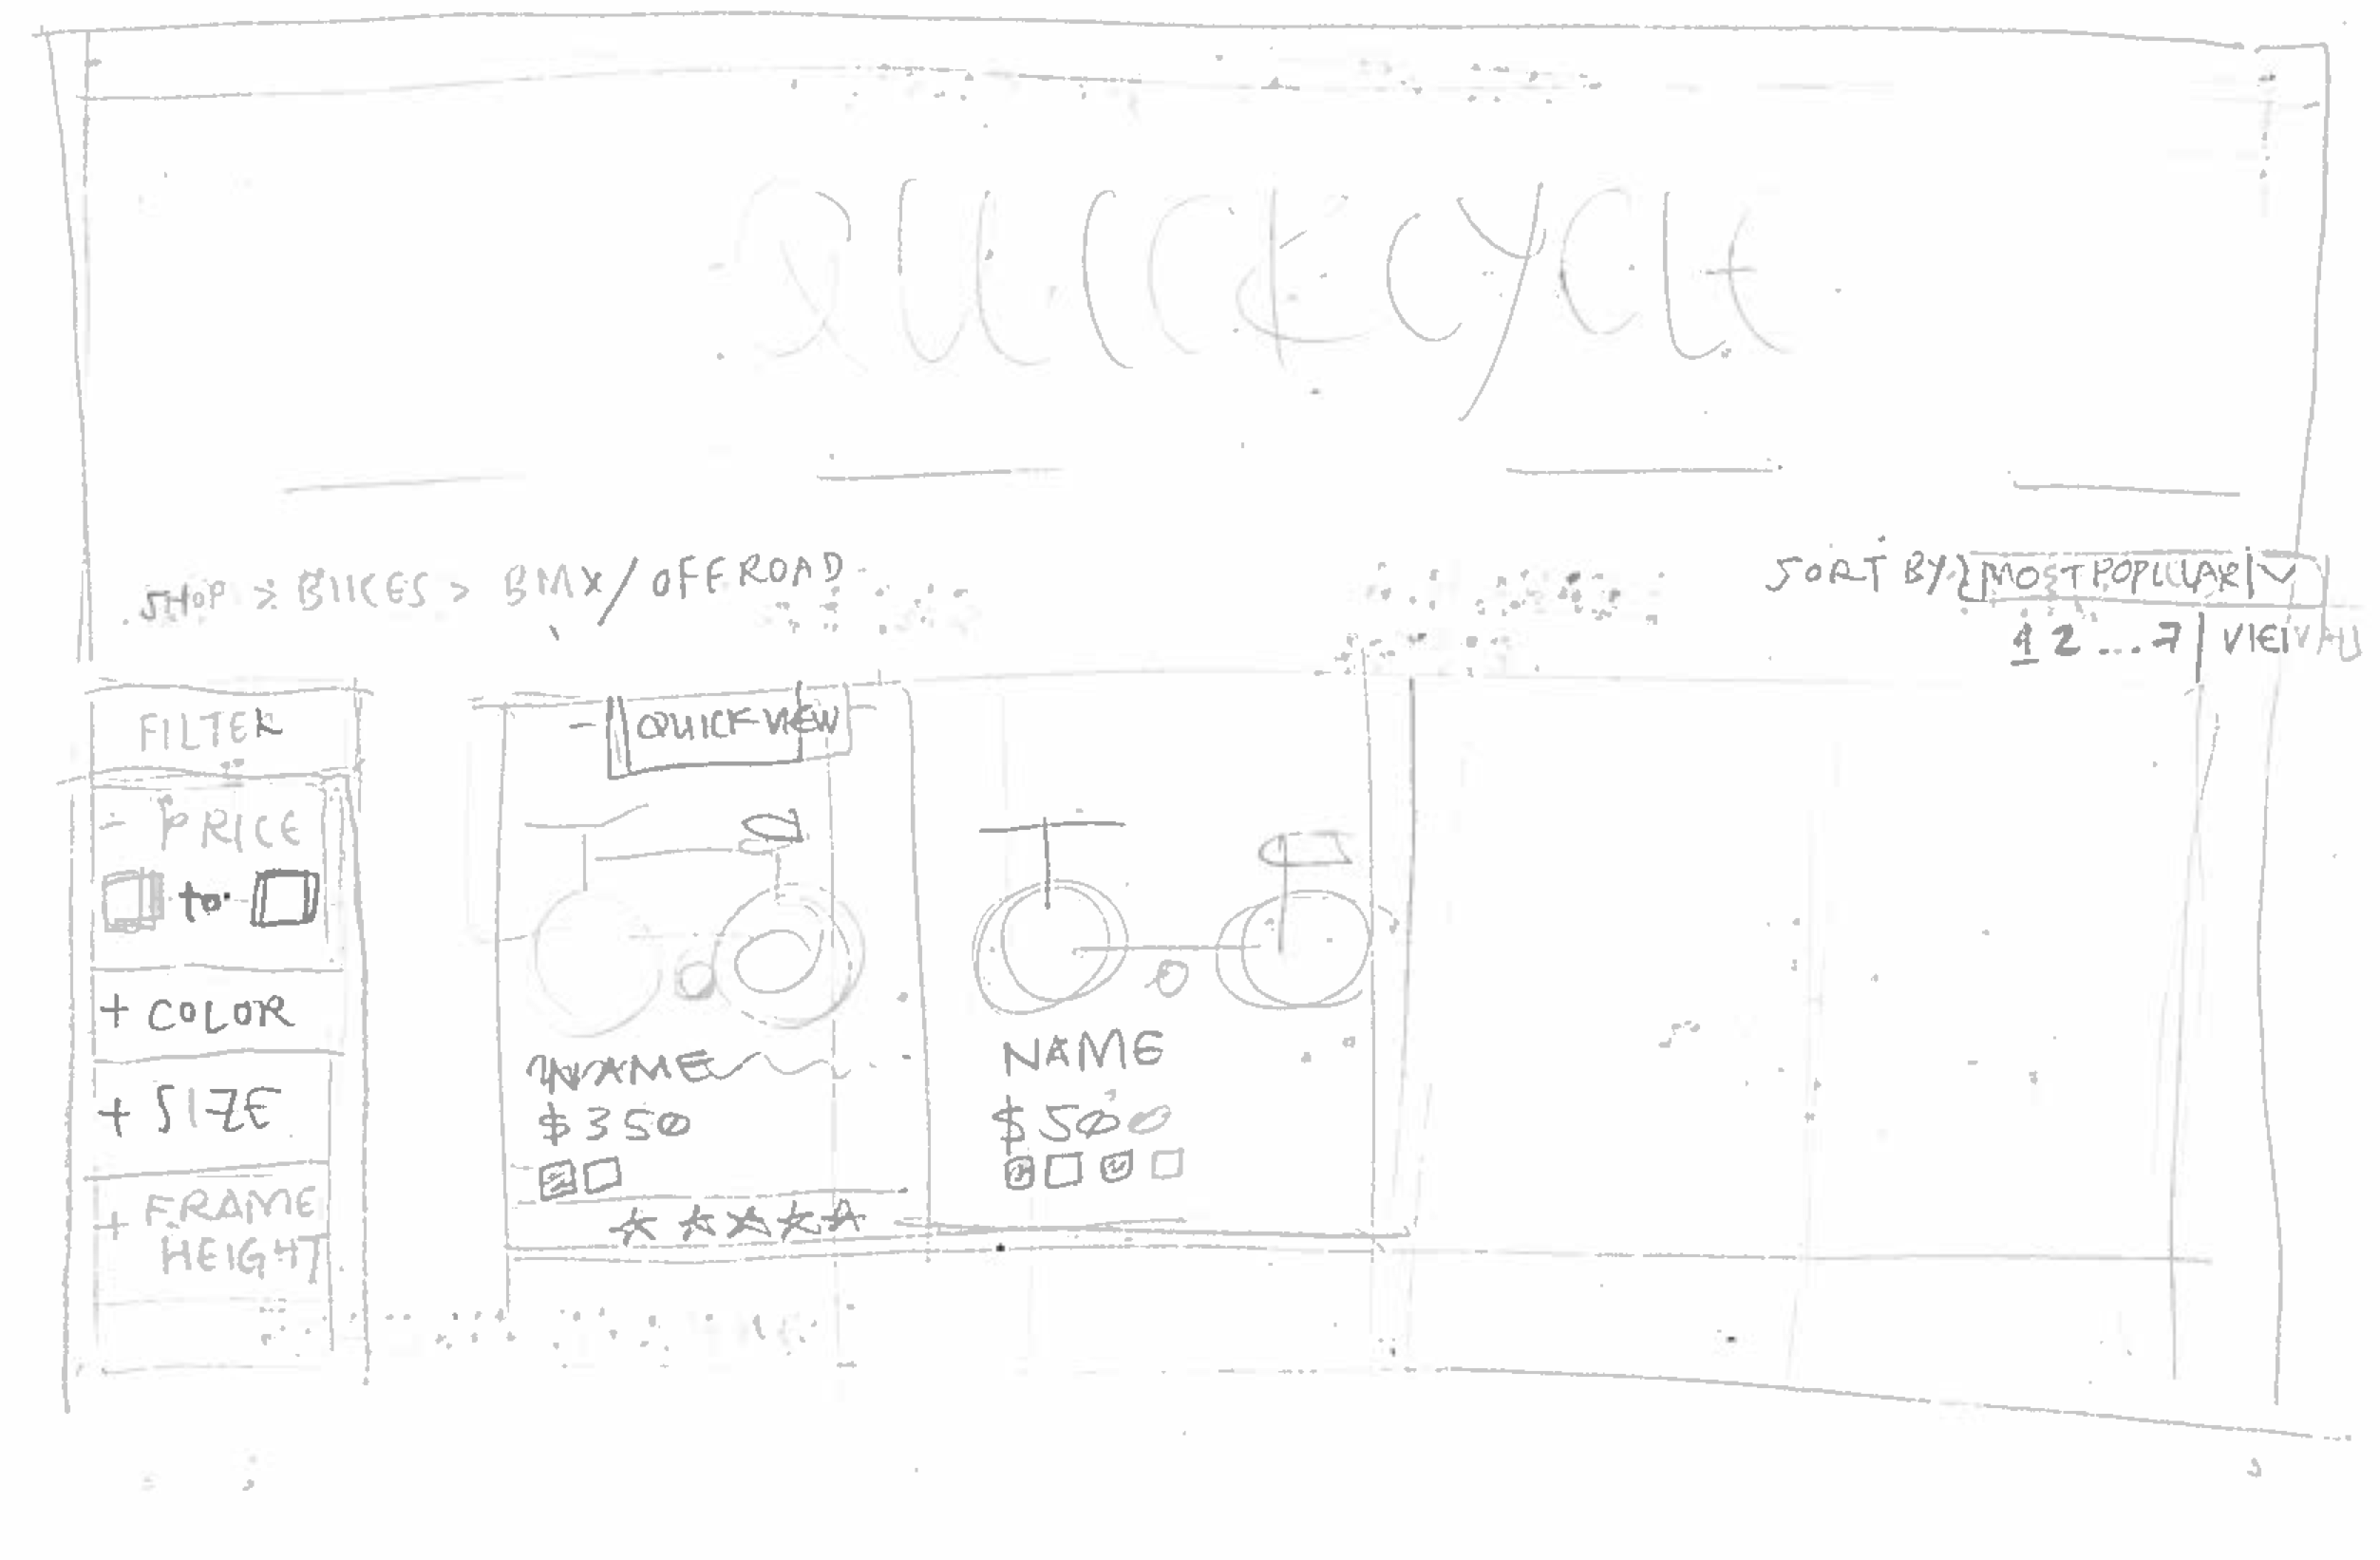 QUICKCYCLE
SHOP > BIKES > BMX/OFFROAD
SORT BY: MOST POPULAR
1 2 ... 7 | VIEW ALL
FILTER
QUICKVIEW
- PRICE
to
+ COLOR
+ SIZE
+ FRAME
HEIGHT
NAME
$350
NAME
$500